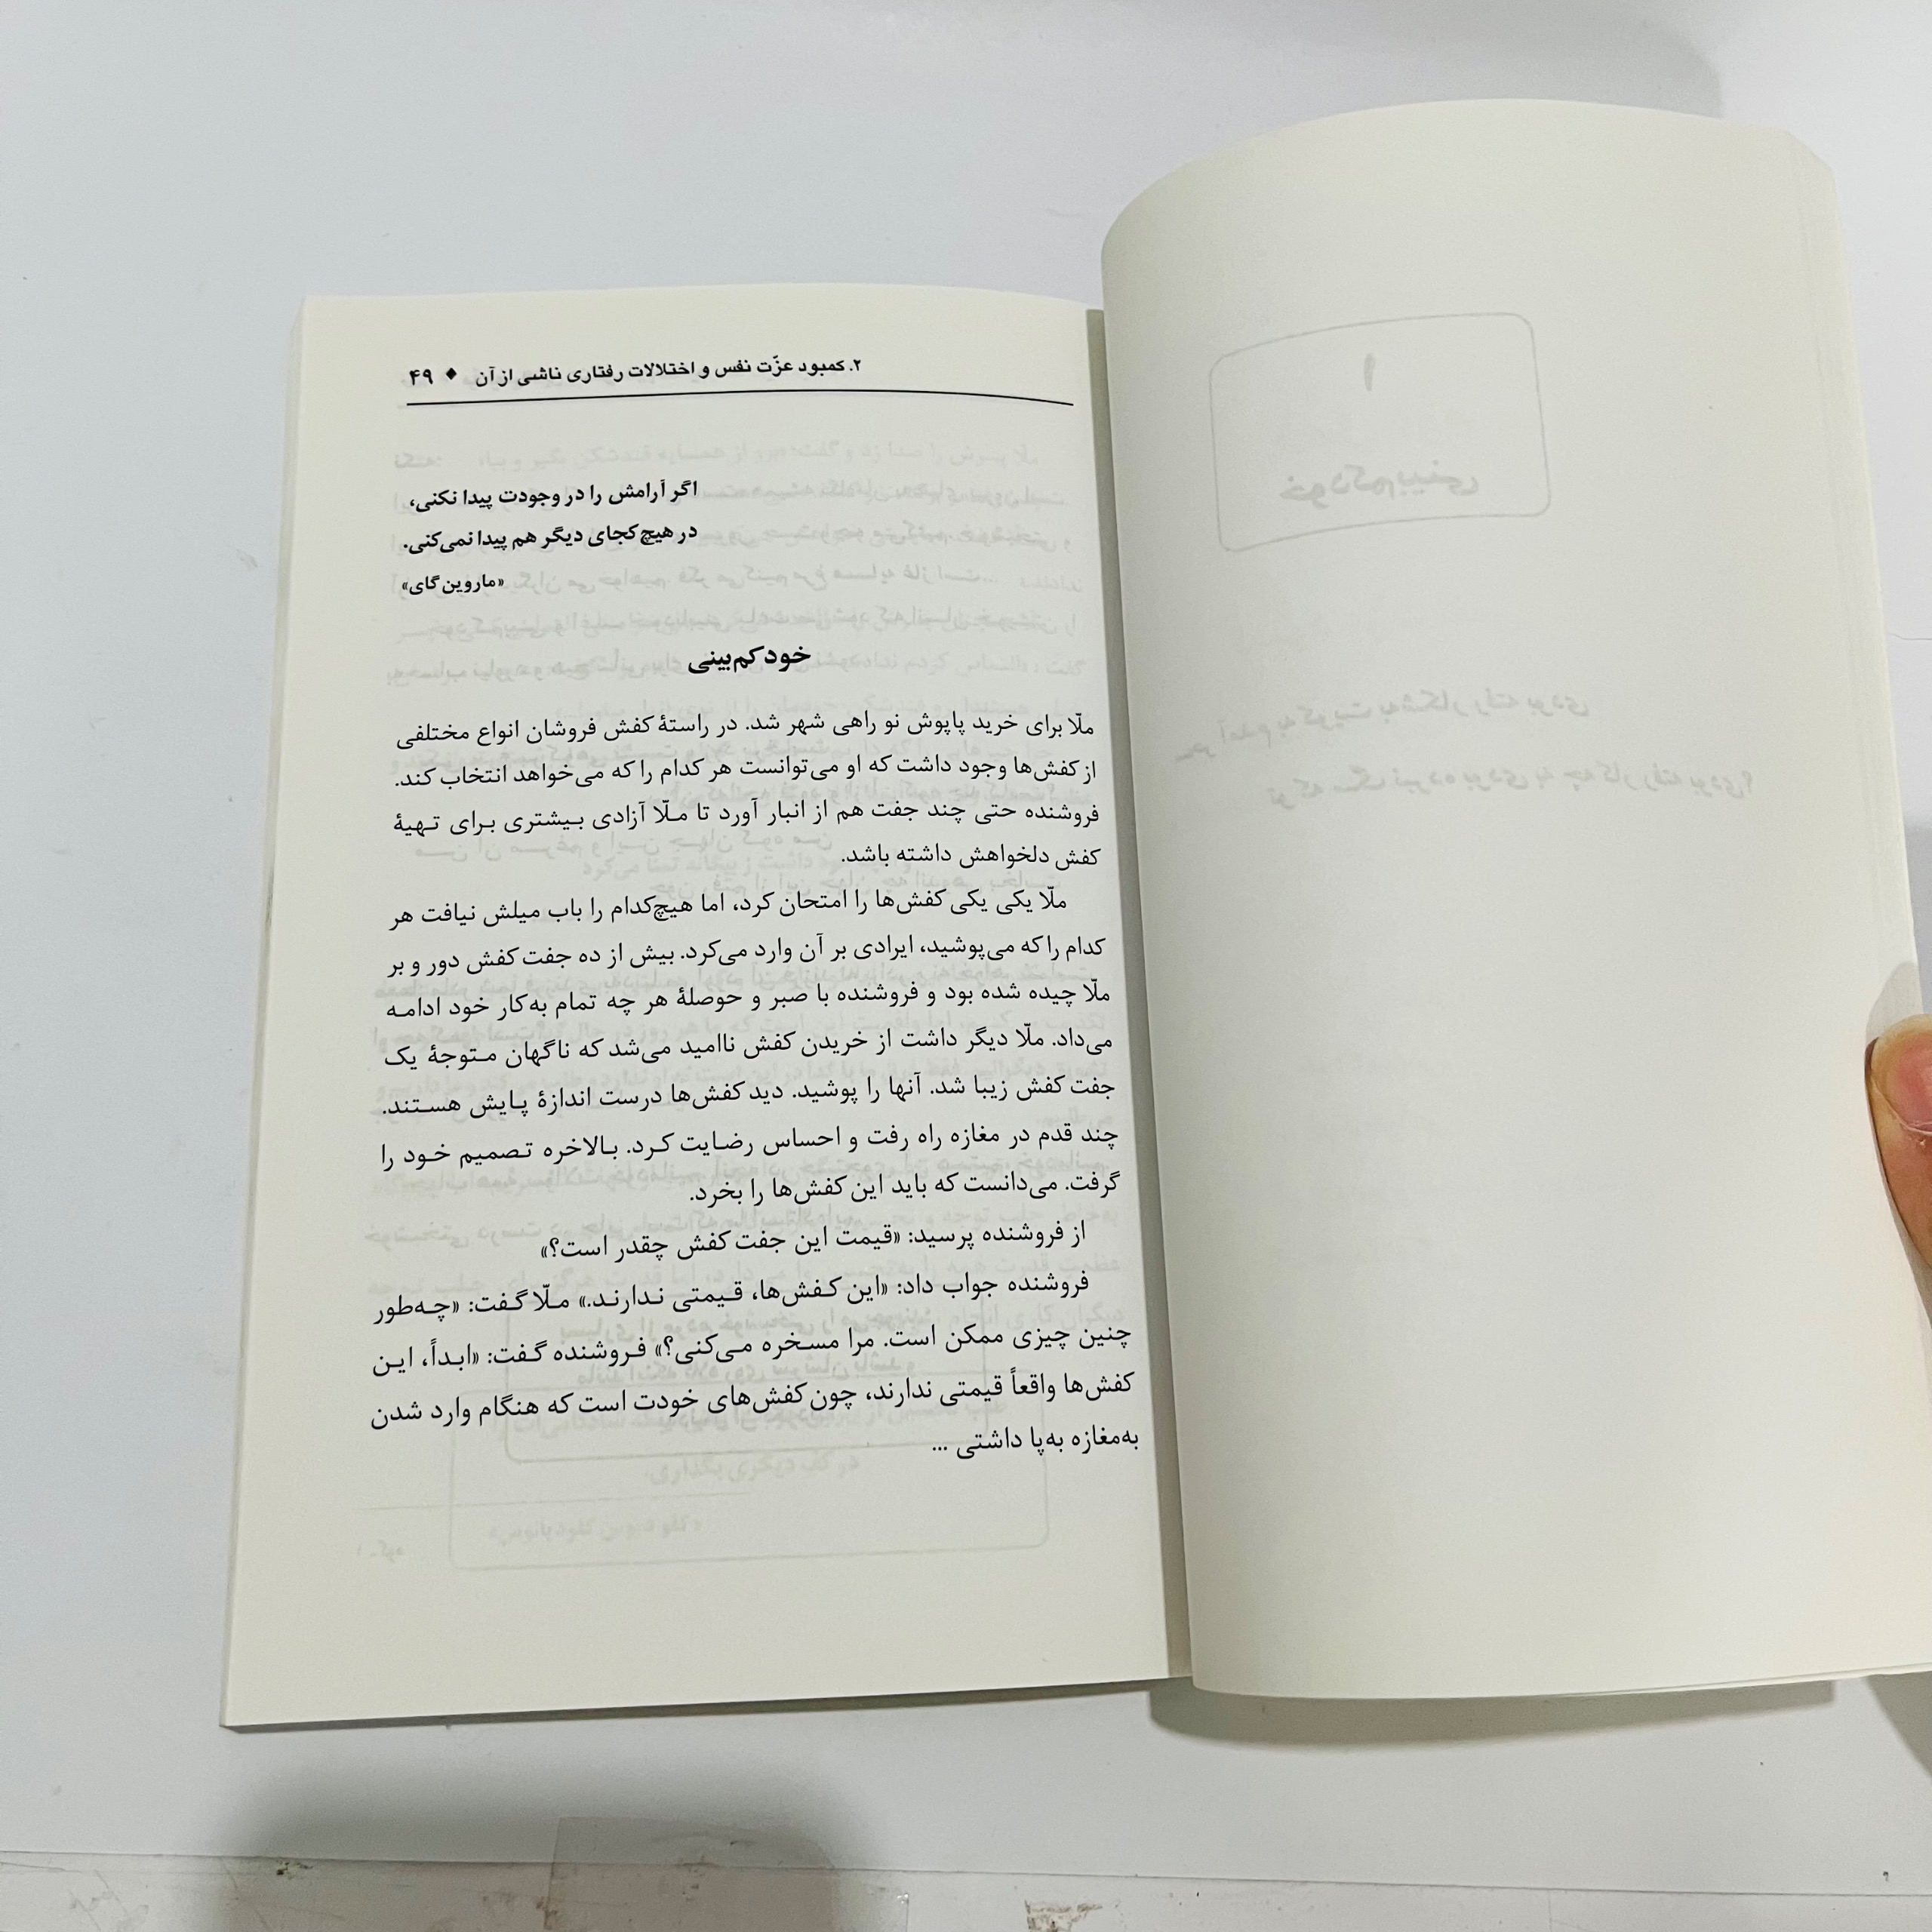 ۲. کمبود عزّت نفس و اختلالات رفتاری ناشی از آن ♦ ۴۹
اگر آرامش را در وجودت پیدا نکنی،
در هیچ کجای دیگر هم پیدا نمی‌کنی.
«ماروین گای»
خود کم‌بینی
ملّا برای خرید پاپوش نو راهی شهر شد. در راستهٔ کفش فروشان انواع مختلفی
از کفش‌ها وجود داشت که او می‌توانست هر کدام را که می‌خواهد انتخاب کند.
فروشنده حتی چند جفت هم از انبار آورد تا ملّا آزادی بیشتری برای تهیهٔ
کفش دلخواهش داشته باشد.
ملّا یکی یکی کفش‌ها را امتحان کرد، اما هیچ‌کدام را باب میلش نیافت هر
کدام را که می‌پوشید، ایرادی بر آن وارد می‌کرد. بیش از ده جفت کفش دور و بر
ملّا چیده شده بود و فروشنده با صبر و حوصلهٔ هر چه تمام به‌کار خود ادامه
می‌داد. ملّا دیگر داشت از خریدن کفش ناامید می‌شد که ناگهان متوجهٔ یک
جفت کفش زیبا شد. آنها را پوشید. دید کفش‌ها درست اندازهٔ پایش هستند.
چند قدم در مغازه راه رفت و احساس رضایت کرد. بالاخره تصمیم خود را
گرفت. می‌دانست که باید این کفش‌ها را بخرد.
از فروشنده پرسید: «قیمت این جفت کفش چقدر است؟»
فروشنده جواب داد: «این کفش‌ها، قیمتی ندارند.» ملّا گفت: «چه‌طور
چنین چیزی ممکن است. مرا مسخره می‌کنی؟» فروشنده گفت: «ابداً، این
کفش‌ها واقعاً قیمتی ندارند، چون کفش‌های خودت است که هنگام وارد شدن
به‌مغازه به‌پا داشتی ...